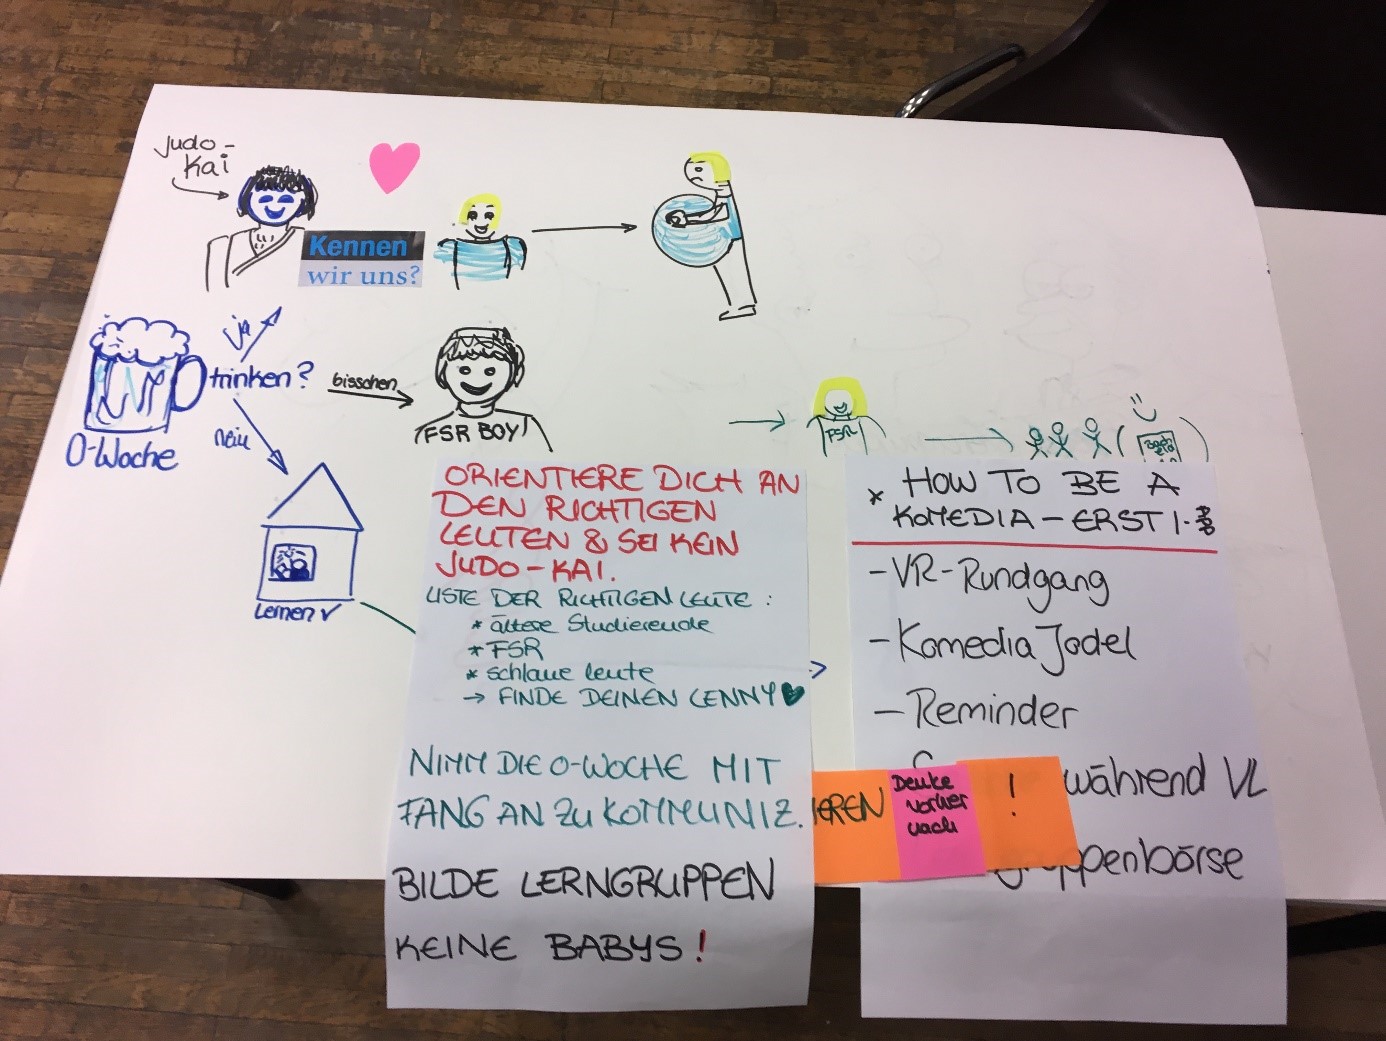 Judo-
Kai
Kennen
wir uns?
ja
trinken?
bisschen
nein
O-Woche
FSR BOY
FSR
Lernen ✓
ORIENTIERE DICH AN
DEN RICHTIGEN
LEUTEN & SEI KEIN
JUDO-KAI.
LISTE DER RICHTIGEN LEUTE :
* ältere Studierende
* FSR
* schlaue leute
→ FINDE DEINEN LENNY ♥
NIMM DIE O-WOCHE MIT
FANG AN ZU KOMMUNIZ.
IEREN
Denke
vorher
nach
!
BILDE LERNGRUPPEN
KEINE BABYS !
* HOW TO BE A
KOMEDIA-ERSTI.
- VR-Rundgang
- Komedia Jodel
- Reminder
während VL
ppenbörse